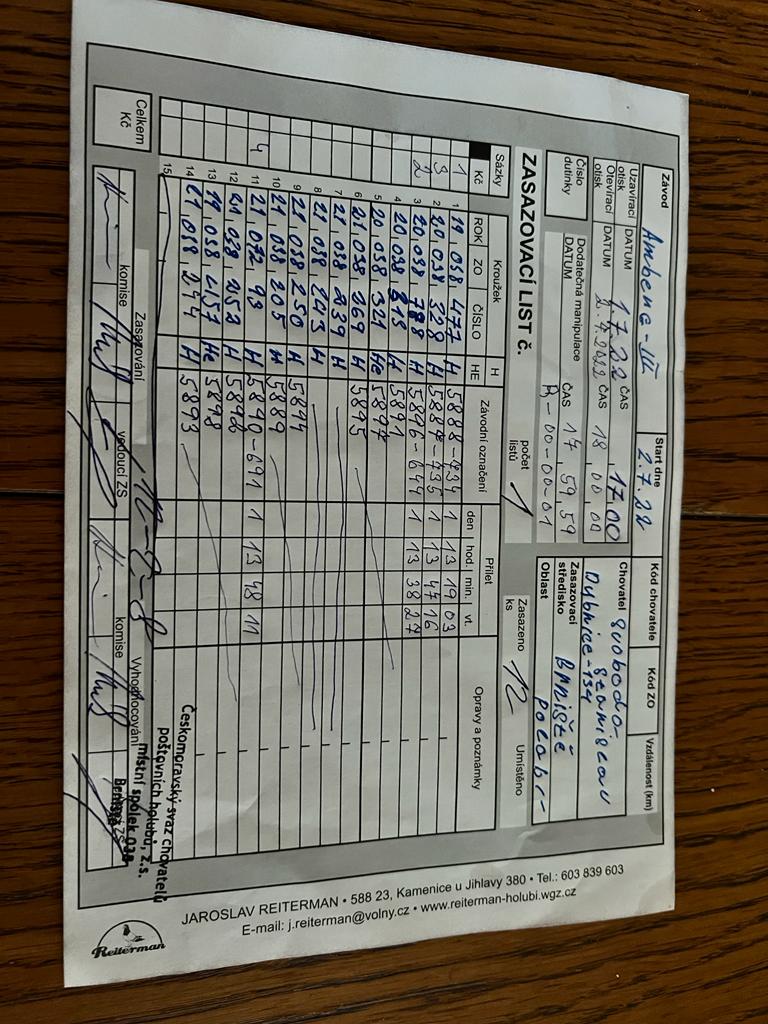 Závod Ambeno-III Start dne 2.7.22 Kód chovatele Kód ZO Vzdálenost (km)
Uzavírací otisk DATUM 1.7.22 ČAS 17.00
Otevírací otisk DATUM 2.7.2022 ČAS 18,00,00
Číslo dutinky Dodatečná manipulace DATUM ČAS 17,59,59
R-00-00-01
Chovatel Svoboda Stanislav
Dubnice-134
Zasazovací středisko
Oblast
ZASAZOVACÍ LIST č. počet listů 1 Zasazeno ks 12 Umístěno
Sázky Kroužek H Závodní označení Přílet Opravy a poznámky
Kč ROK ZO ČÍSLO HE den hod. min. vt.
1 1 19 038 477 H 5888-734 1 13 19 03
3 2 20 038 328 H 5887-735 1 13 47 16
2 3 20,038,788 H 5896-644 1 13 38 27
4 20 038 313 H 5891
5 20 038 321 He 5897
6 21 038 269 H 5895
7 21 038 239 H
8 21,038,243 H
9 21 038 250 H 5894
10 21 038 205 H 5889
4 11 21 072 93 H 5890-691 1 13 48 11
12 21 038 252 H 5892
13 19 038 457 He 5898
14 21 038 244 H 5893
15
12-2-8
Celkem Kč Zasazování Vyhodnocování
komise vedoucí ZS komise
Českomoravský svaz chovatelů
poštovních holubů, z.s.
místní spolek 038
JAROSLAV REITERMAN • 588 23, Kamenice u Jihlavy 380 • Tel.: 603 839 603
E-mail: j.reiterman@volny.cz • www.reiterman-holubi.wgz.cz
Reiterman